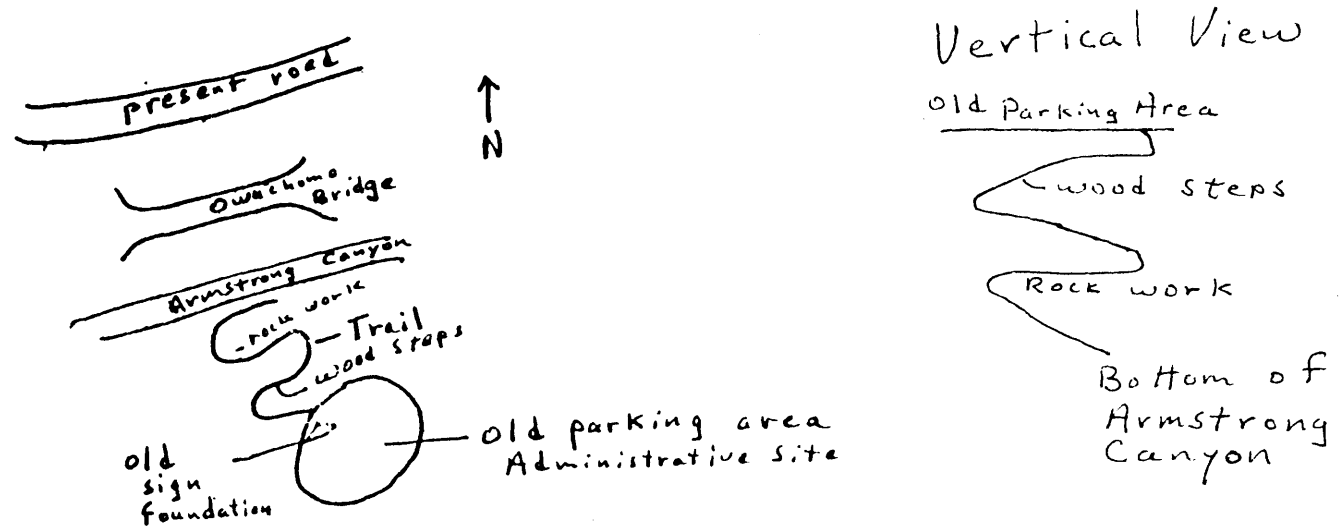 present road
N
Owachomo
Bridge
Armstrong Canyon
rock work
Trail
wood steps
old parking area
Administrative site
old
sign
foundation
Vertical View
Old Parking Area
wood steps
Rock work
Bottom of
Armstrong
Canyon